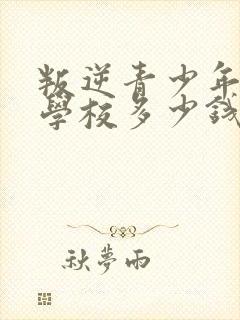 叛逆青少年
學校多少錢
秋夢雨